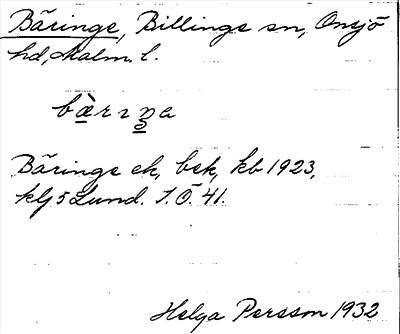 Bäringe, Billinge sn, Onsjö
hd, Malm. l.
bæ̀rıŋa
Bäringe ek, bek, kb 1923,
klj 5 Lund. 1. Ö. 41.
Helga Persson 1932